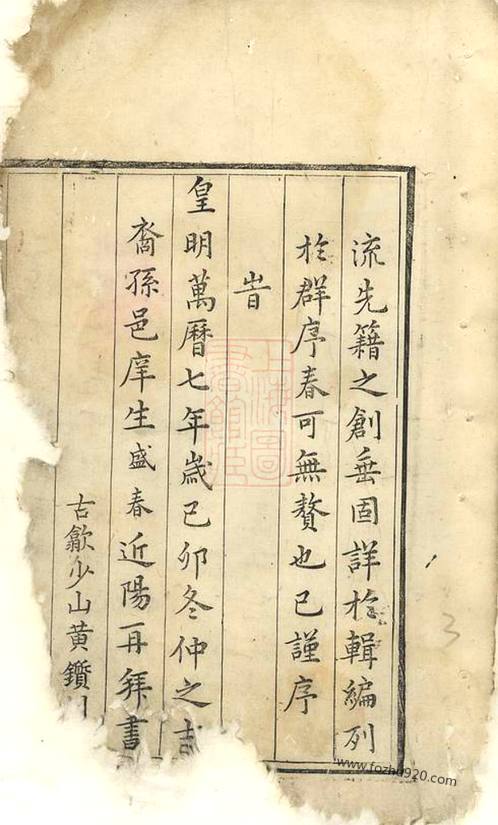 流先籍之創垂固詳於輯編列
於群序春可無贅也已謹序
旹
皇明萬曆七年歲己卯冬仲之吉
裔孫邑庠生盛春近陽再拜書
古歙少山黄鑽
上海圖書館藏
3
www.fozhu920.com